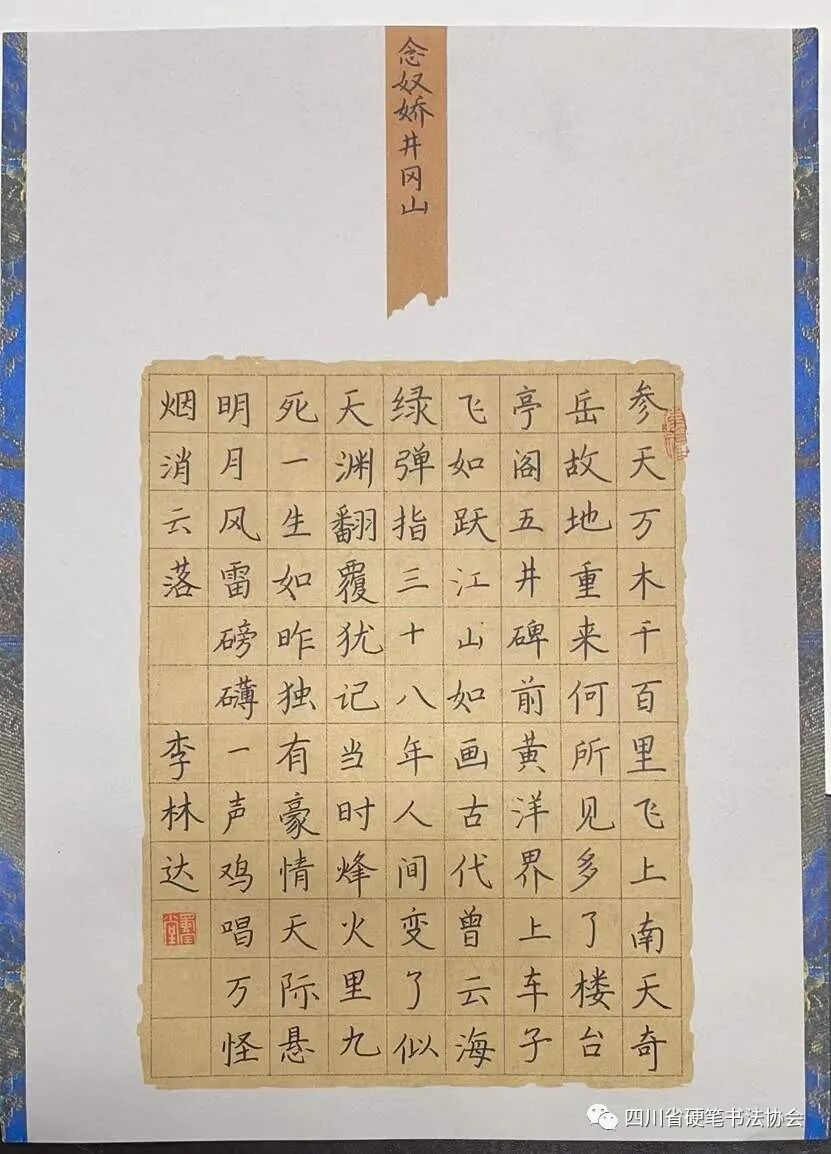 念奴娇井冈山
参天万木千百里飞上南天奇
岳故地重来何所见多了楼台
亭阁五井碑前黄洋界上车子
飞如跃江山如画古代曾云海
绿弹指三十八年人间变了似
天渊翻覆犹记当时烽火里九
死一生如昨独有豪情天际悬
明月风雷磅礴一声鸡唱万怪
烟消云落 李林达
四川省硬笔书法协会